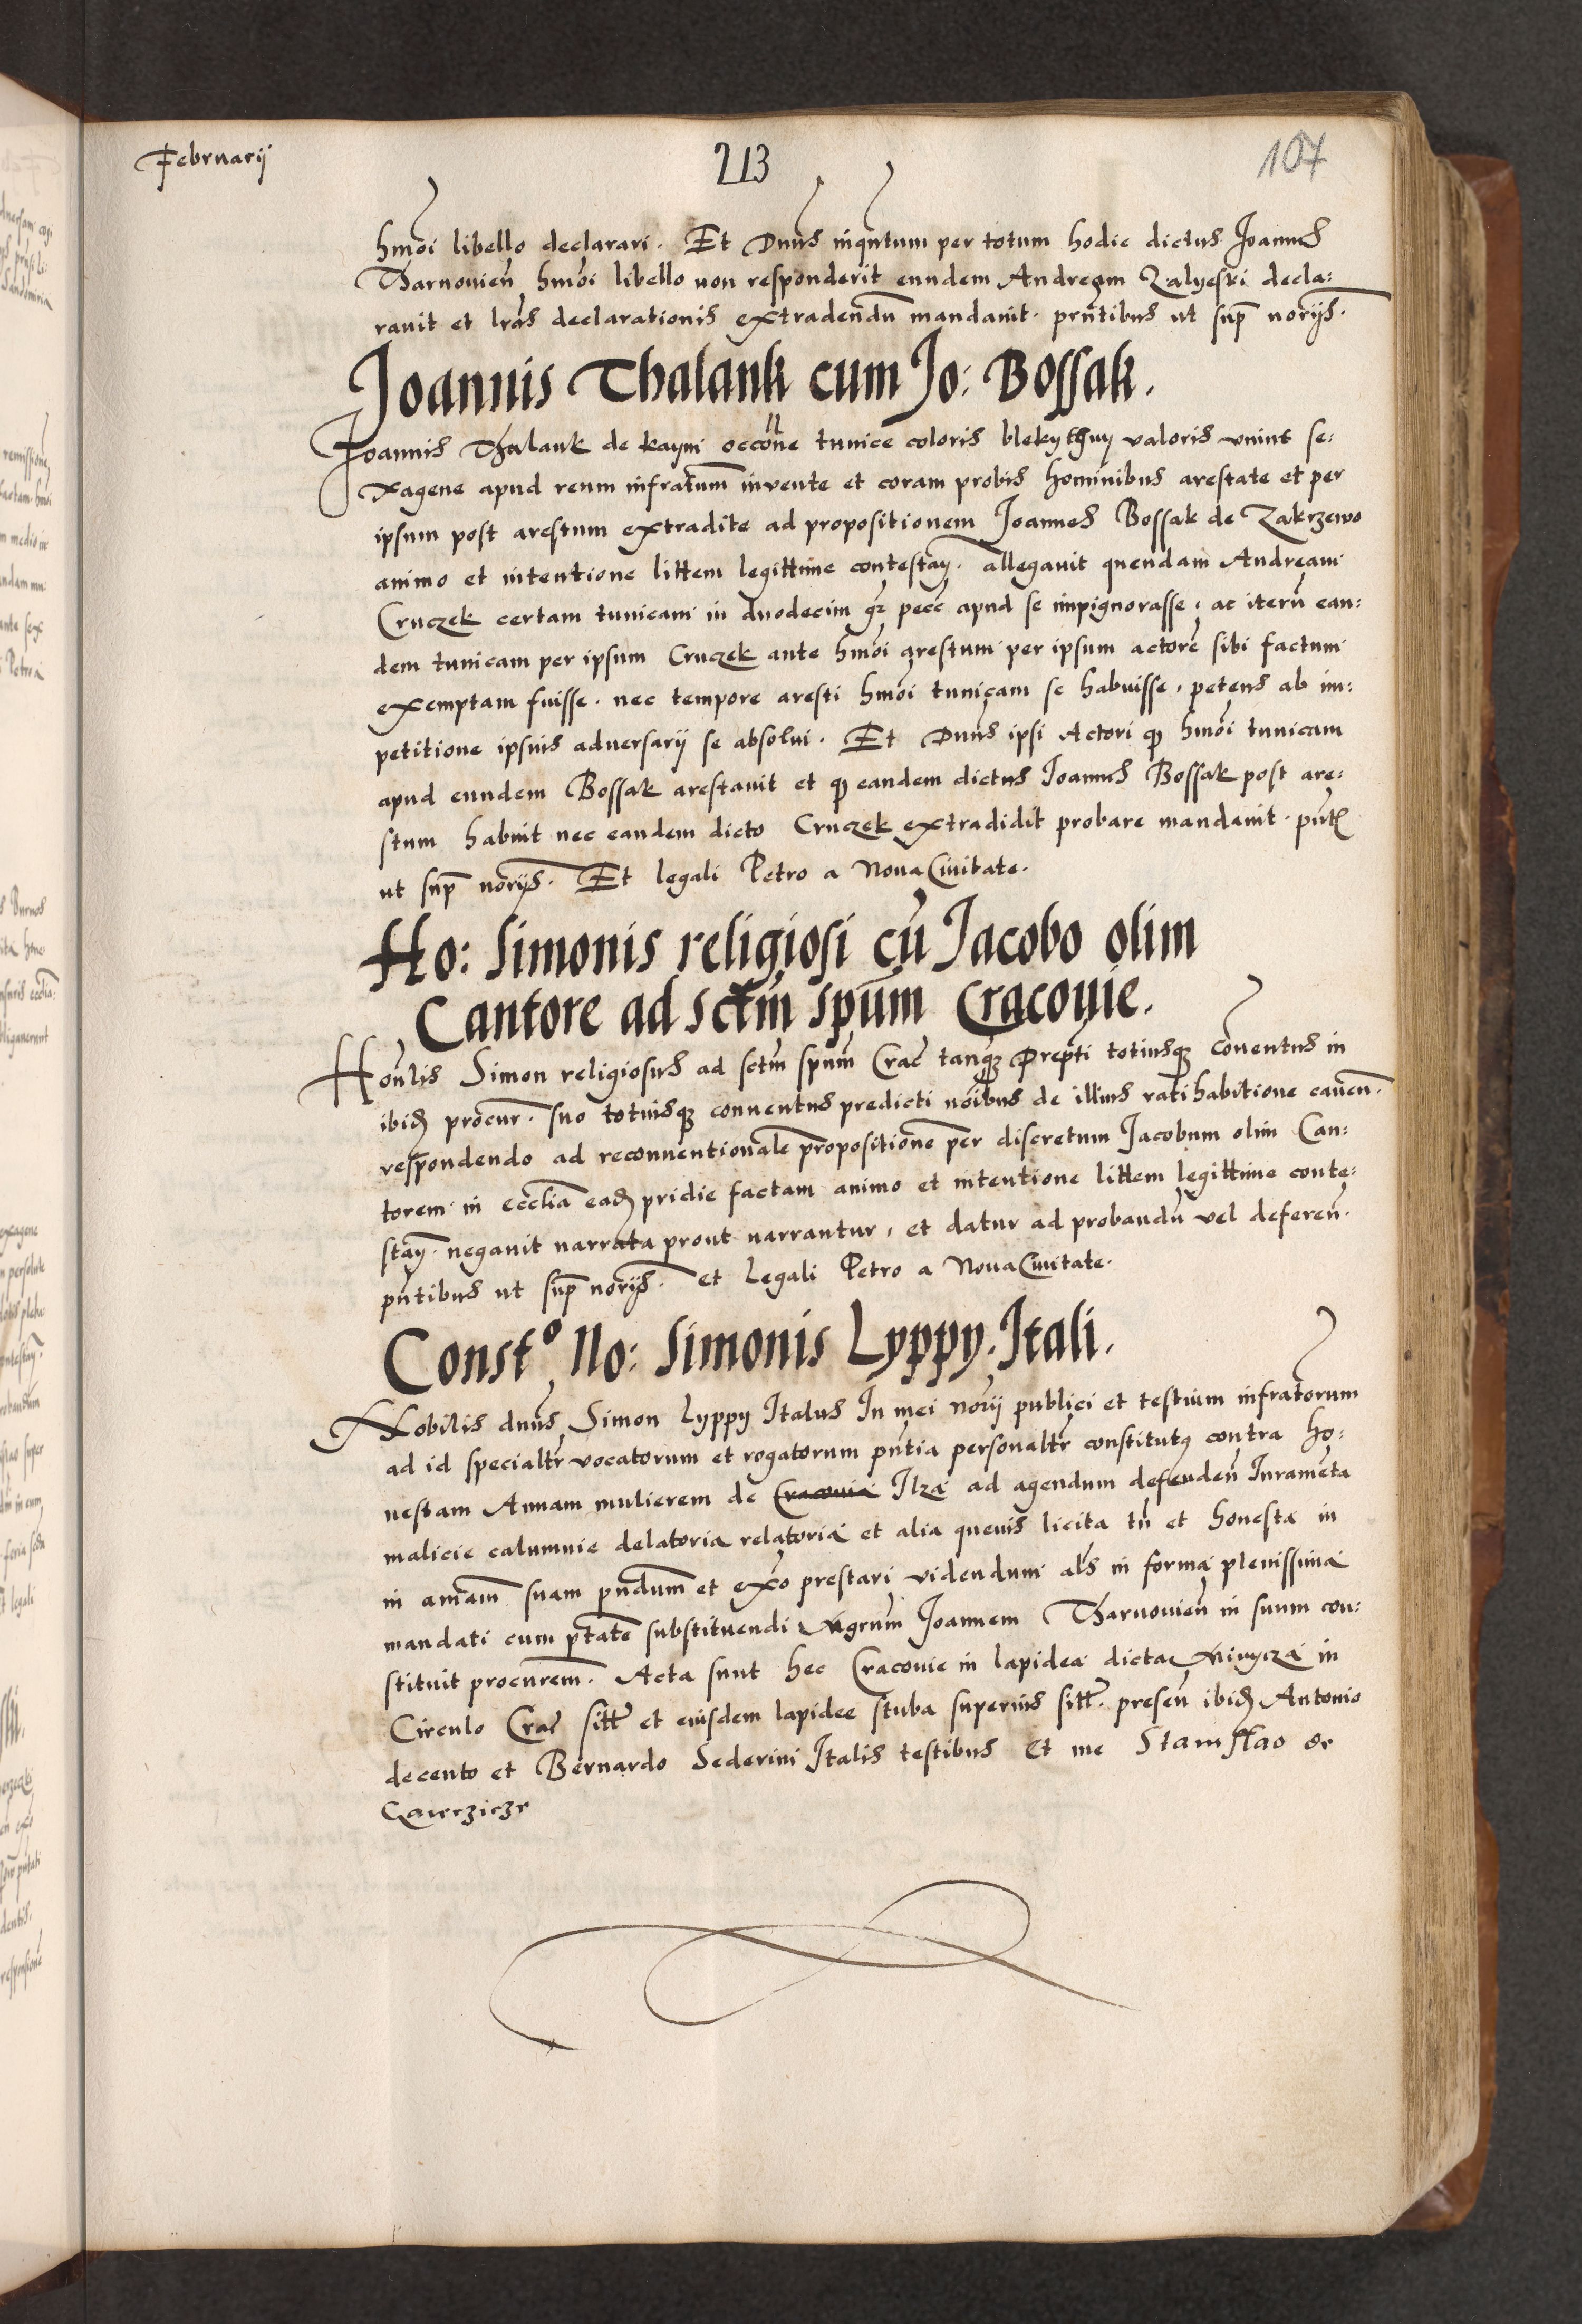 Februarij
213
107
hmoi libello declarari. Et Dnus inquntum per totum hodie dictus Joannes
Tharnouien hmoi libello non responderit eundem Andream Zalyeski decla:
rauit et lras declarationis extradendu mandauit. prntibus ut supra norijs.
Joannis Thalank cum Jo: Bossak.
Joannis Thalank de kayni occone tunice coloris blekythny valoris vnius se:
xagene apud reum infratum invente et coram probis hominibus arestate et per
ipsum post arestum extradite ad propositionem Joannes Bossak de Zakrzewo
animo et intentione littem legittime contestan. allegauit quendam Andream
Cruczek certam tunicam in duodecim gr pecc apud se impignorasse, ac iteru ean:
dem tunicam per ipsum Cruczek ante hmoi arestum per ipsum actore sibi factum
exemptam fuisse. nec tempore aresti hmoi tunicam se habuisse, petens ab im:
petitione ipsius adversarij se absolui. Et Dnus ipsi Actori q hmoi tunicam
apud eundem Bossak arestauit et q eandem dictus Joannes Bossak post are:
stum habuit nec eandem dicto Cruczek extradidit probare mandauit. pnt
ut sup norijs. Et legali Petro a Noua Ciuitate.
Ho: Simonis religiosi cu Jacobo olim
Cantore ad sctm spum Cracouie.
Honlis Simon religiosus ad sctm spum Crac tanq Prepti totiusq conentus in
ibid procur. suo totiusq conuentus predicti noibus de illius ratihabitione cauen.
respondendo ad reconuentionale propositione per discretum Jacobum olim Can:
torem in ecclia ead pridie factam animo et intentione littem legittime conte:
stan. negauit narrata prout narrantur, et datur ad probandu vel deferen.
pntibus ut sup norijs. et Legali Petro a Noua Ciuitate.
Const° No: Simonis Lyppy. Itali.
Nobilis dnus Simon Lyppy Italus In mei norij publici et testium infratorum
ad id specialtr vocatorum et rogatorum pntia personaltr constitutus contra ho:
nestam Annam mulierem de Cracouia Ilza ad agendum defenden Iuramenta
malicie calumnie delatoria relatoria et alia queuis licita tn et honesta in
in amam suam pndum et exo prestari videndum als in forma plenissima
mandati cum ptate substituendi Mgrum Joannem Tharnouien in suum con:
stituit procurem. Acta sunt hec Cracouie in lapidea dicta in
Circulo Crac sitt et eiusdem lapidee stuba superius sitt. presen ibid Antonio
decento et Bernardo Sederini Italis testibus Et me Stanislao de